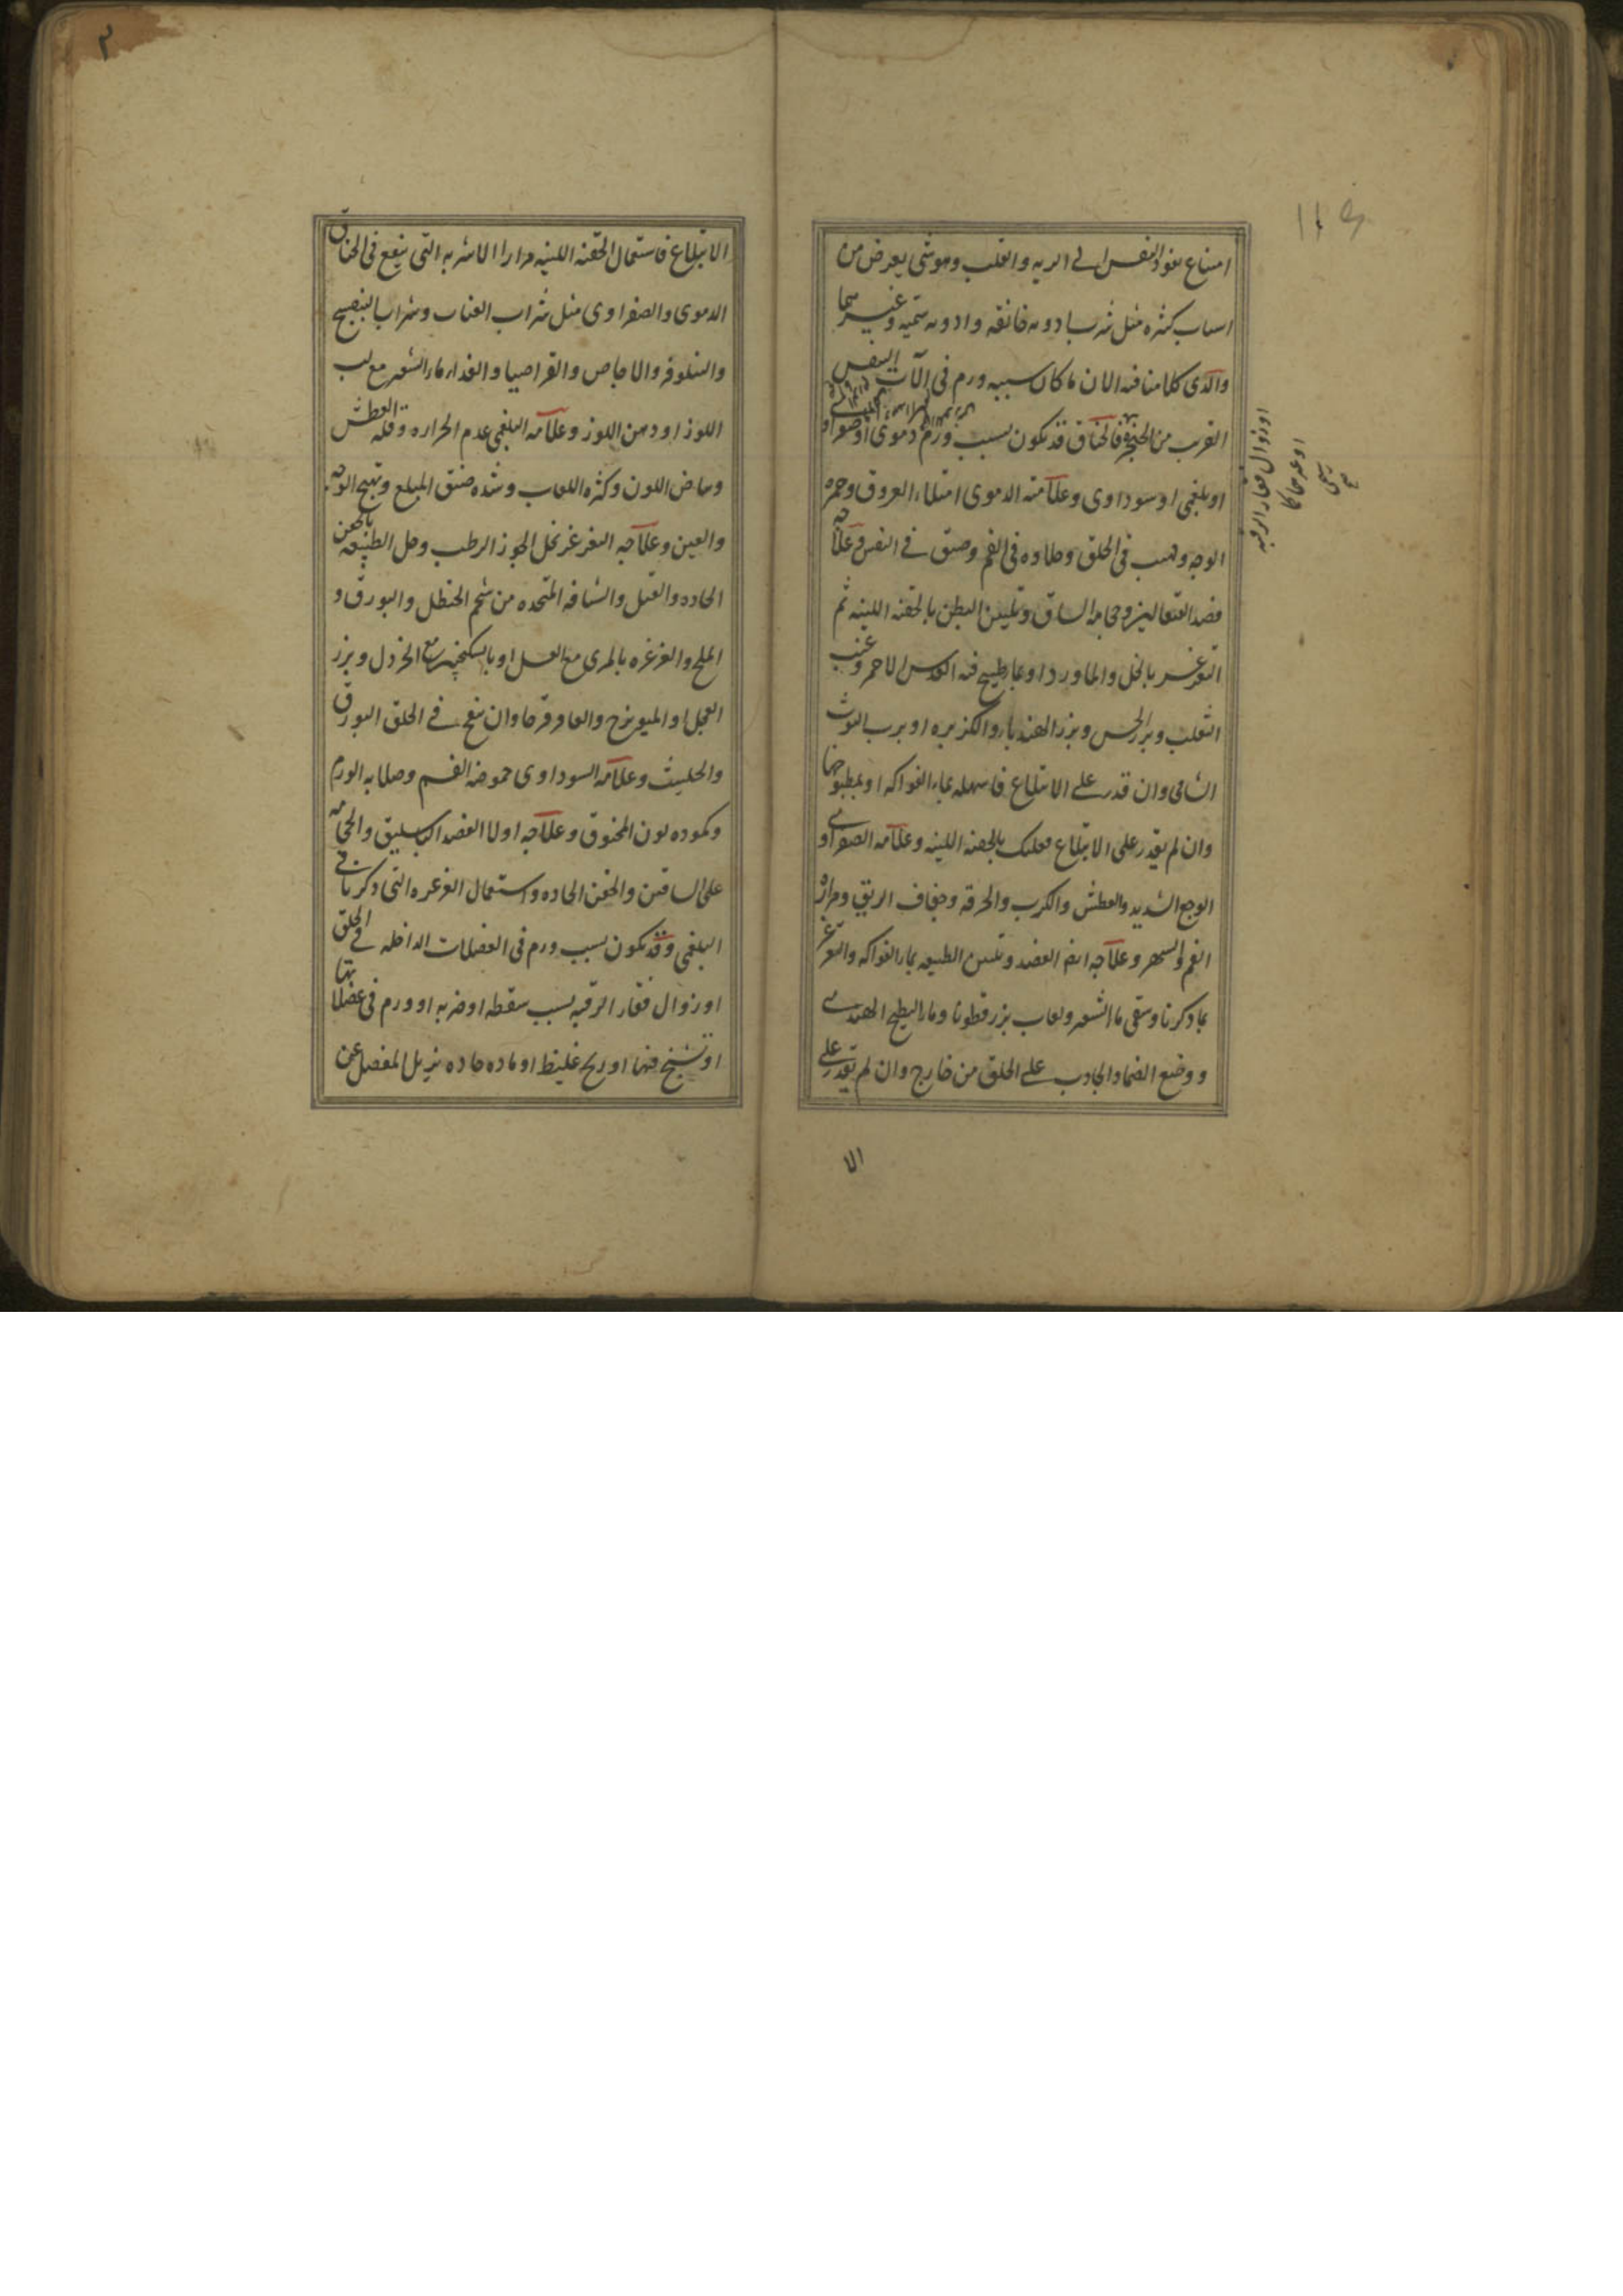 امتناع نفوذ النفس الى الريه والقلب وهو شى يعرض من
اسباب كثره مثل شرب ادويه خانقه وادويه سميه وغيرهما
والذى كلامنا فيه الان ما كان سببه ورم فى الآت النفس
القرب من الحنجره فالخناق قد يكون بسبب ورم دموى او صفراوى
او بلغمى او سوداوى وعلامته الدموى امتلاء العروق وحمره
الوجه ولهيب فى الحلق وحلاوه فى الفم وضيق فى النفس وعلاجه
فصد القيفالين وحجامه الساق وتليين البطن بالحقنه اللينه ثم
التغرغر بالخل والماورد او بما طبيخ فيه العدس الاحمر وعنب
الثعلب وبزر الخس وبزر الهندباء والكزبره او برب التوث
الشامى وان قدر على الابتلاع فاسهله بماء الفواكه او بمطبوخها
وان لم يقدر على الابتلاع فعليك بالحقنه اللينه وعلامه الصفراوى
الوجع الشديد والعطش والكرب والحرقه وجفاف الريق ومراره
الفم والسهر وعلاجه ايضا الفصد وتليين الطبيعه بماء الفواكه والتغرغر
بما ذكرنا وسقى ماء الشعير ولعاب بزر قطونا وماء البطيخ الهندى
ووضع الضماد الجاذب على الحلق من خارج وان لم يقدر على
الا
او زوال فقار الرقبه
١١٤
٣
الابتلاع فاستعمال الحقنه اللينه مرارا الاشربه التى ينفع فى الخناق
الدموى والصفراوى مثل شراب العناب وشراب البنفسج
والنيلوفر والاجاص والقراصيا والغذاء ماء الشعير مع لب
اللوز او دهن اللوز وعلامه البلغمى عدم الحراره وقله العطش
وبياض اللون وكثره اللعاب وشده ضيق المبلع وتهيج الوجه
والعين وعلاجه التغرغر بخل الجوز الرطب وحل الطبيعه بالحقن
الحاده والفتل والشافه المتخذه من شحم الحنظل والبورق و
الملح والغرغره بالمرى مع العسل او بالسكنجبين مع الخردل وبزر
الفجل او الميويزج والعاقرقرحا وان ينفخ فى الحلق البورق
والحلتيث وعلامه السوداوى حموضه الفم وصلابه الورم
وكموده لون المخنوق وعلاجه اولا الفصد الباسليق والحجامه
على الساقين والحقن الحاده واستعمال الغرغره التى ذكرنا فى
البلغمى وقد يكون بسبب ورم فى العضلات الداخله فى الحلق
او زوال فقار الرقبه بسبب سقطه او ضربه او ورم فى عضلاتها
او تشنج فيها او ريح غليظ او ماده حاده يزيل المفصل عن